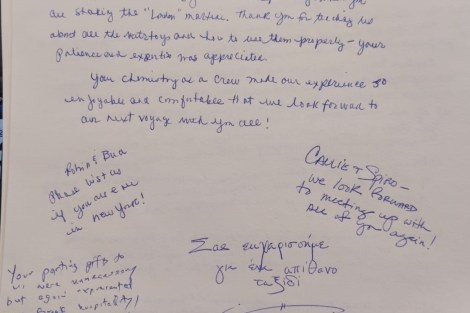 are sharing the "London" machine. Thank you for teaching us
about all the and how to use them properly - your
patience and expertise was appreciated.
Your chemistry as a crew made our experience so
enjoyable and comfortable that we look forward to
our next voyage with you all!
Robin &
Please visit us
if you are ever
in new york!
CALLIE & SPIRO -
WE LOOK FORWARD
TO meeting up with
ALL of you again!
Σας ευχαριστούμε
για ένα απίθανο
ταξίδι
Your parting gifts to
us were unnecessary
but again represented
hospitality!